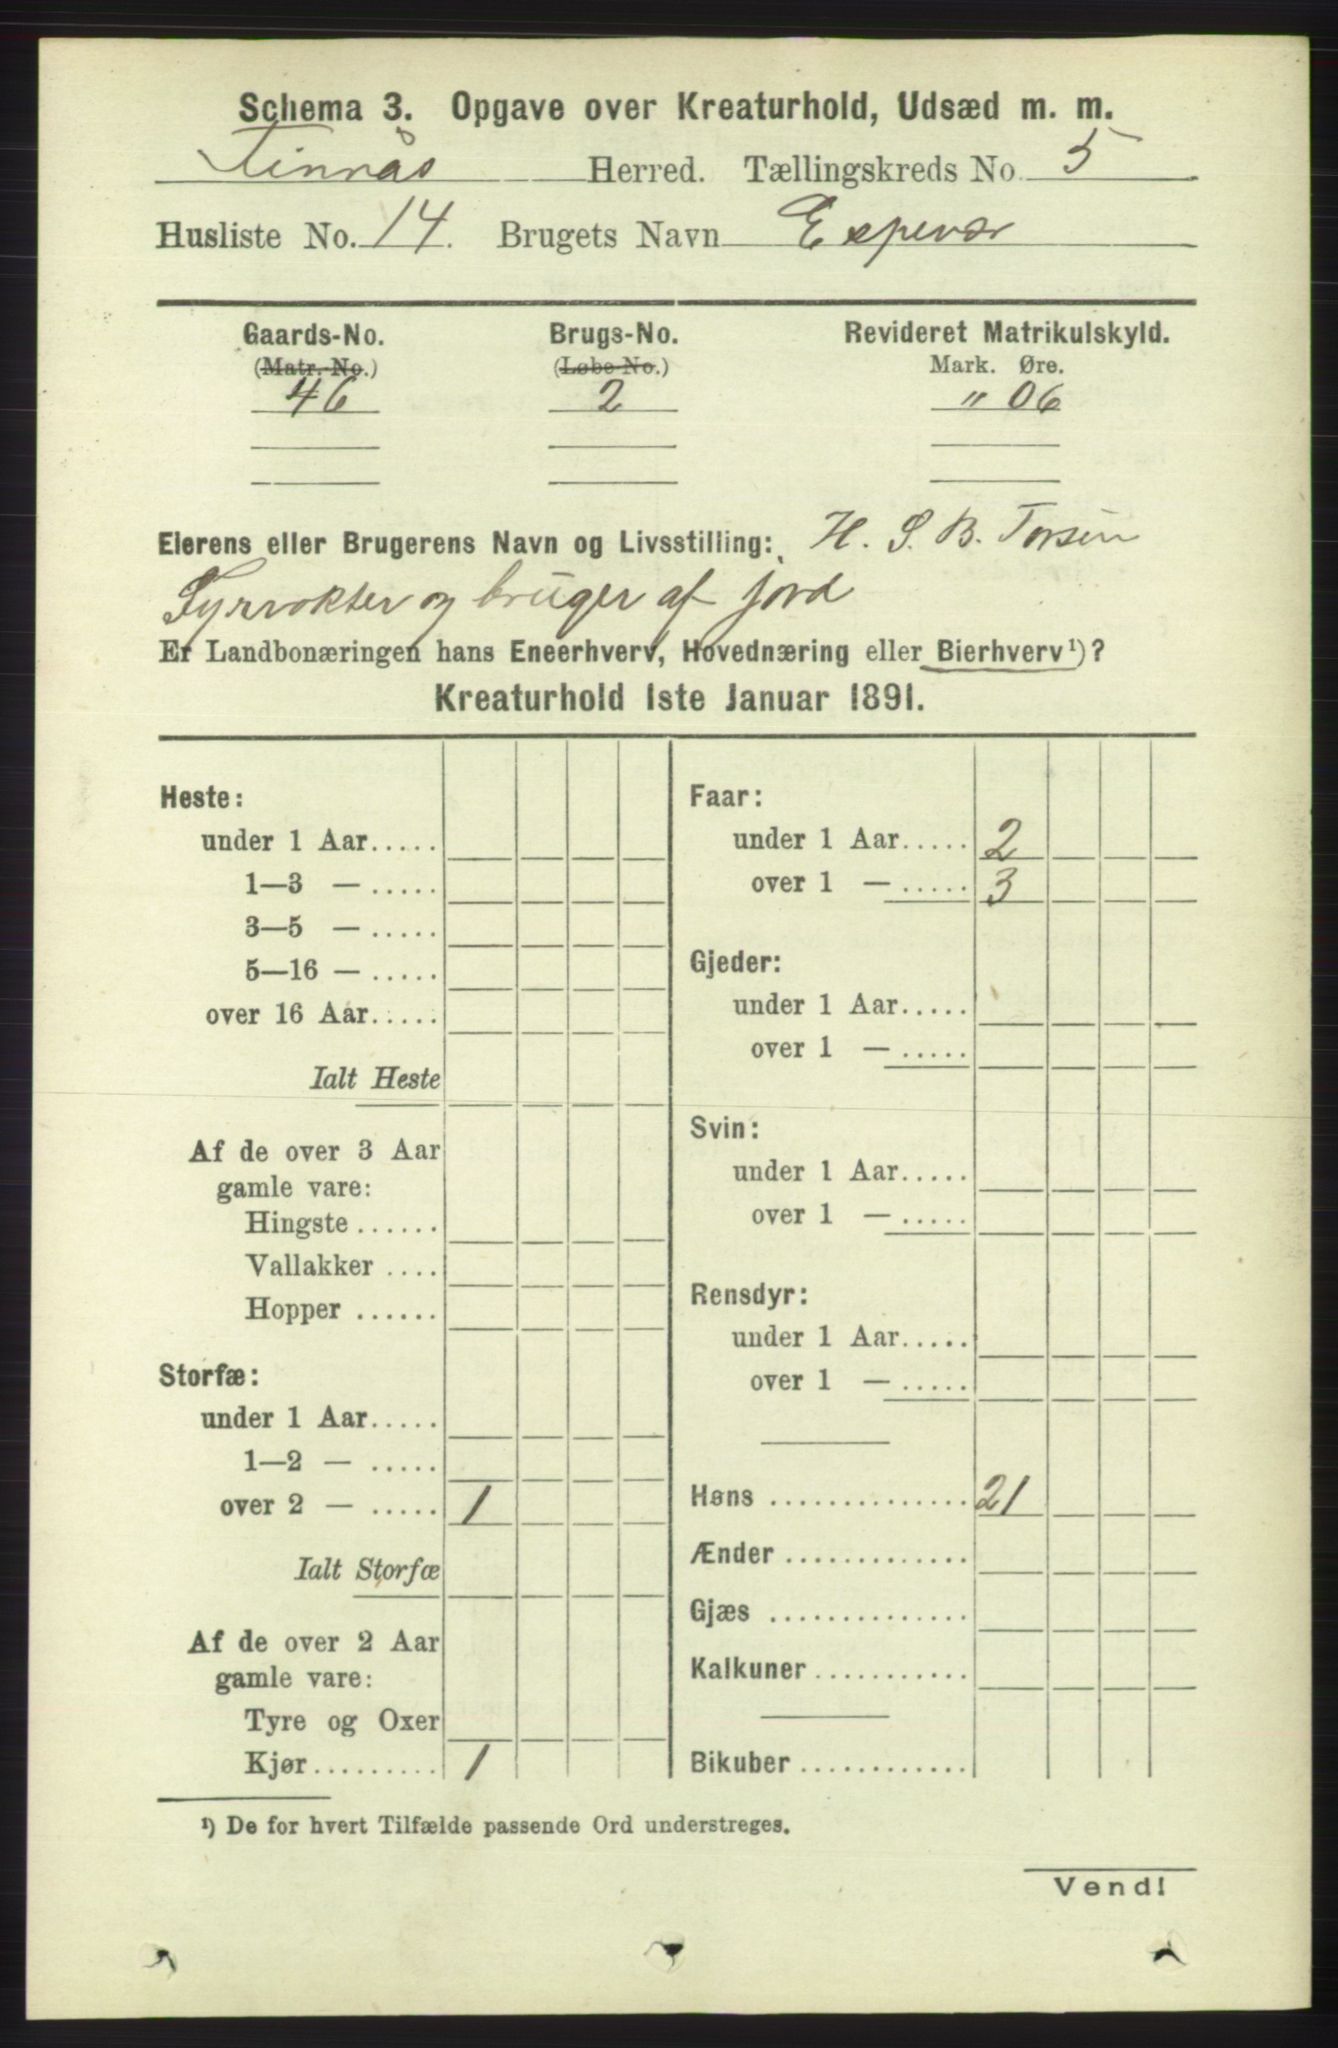 Schema 3. Opgave over Kreaturhold, Udsæd m. m.
Finnås Herred. Tællingskreds No. 5
Husliste No. 14. Brugets Navn Espevær
Gaards-No. Brugs-No. Revideret Matrikulskyld.
(Matr.-No.) (Løbe-No.) Mark. Øre.
46 2 " 06
Eierens eller Brugerens Navn og Livsstilling: H. S. B. Torsen
Fyrvokter og bruger af jord
Er Landbonæringen hans Eneerhverv, Hovednæring eller Bierhverv¹)?
Kreaturhold 1ste Januar 1891.
Heste:
under 1 Aar.....
1—3 — .....
3—5 — .....
5—16 — .....
over 16 Aar.....
Ialt Heste
Af de over 3 Aar
gamle vare:
Hingste ......
Vallakker ....
Hopper ......
Storfæ:
under 1 Aar.....
1—2 — .....
over 2 — ..... 1
Ialt Storfæ
Af de over 2 Aar
gamle vare:
Tyre og Oxer
Kjør ......... 1
Faar:
under 1 Aar..... 2
over 1 — ..... 3
Gjeder:
under 1 Aar.....
over 1 — .....
Svin:
under 1 Aar.....
over 1 — .....
Rensdyr:
under 1 Aar.....
over 1 — .....
Høns .............. 21
Ænder .............
Gjæs ..............
Kalkuner ...........
Bikuber ............
¹) De for hvert Tilfælde passende Ord understreges.
Vend!